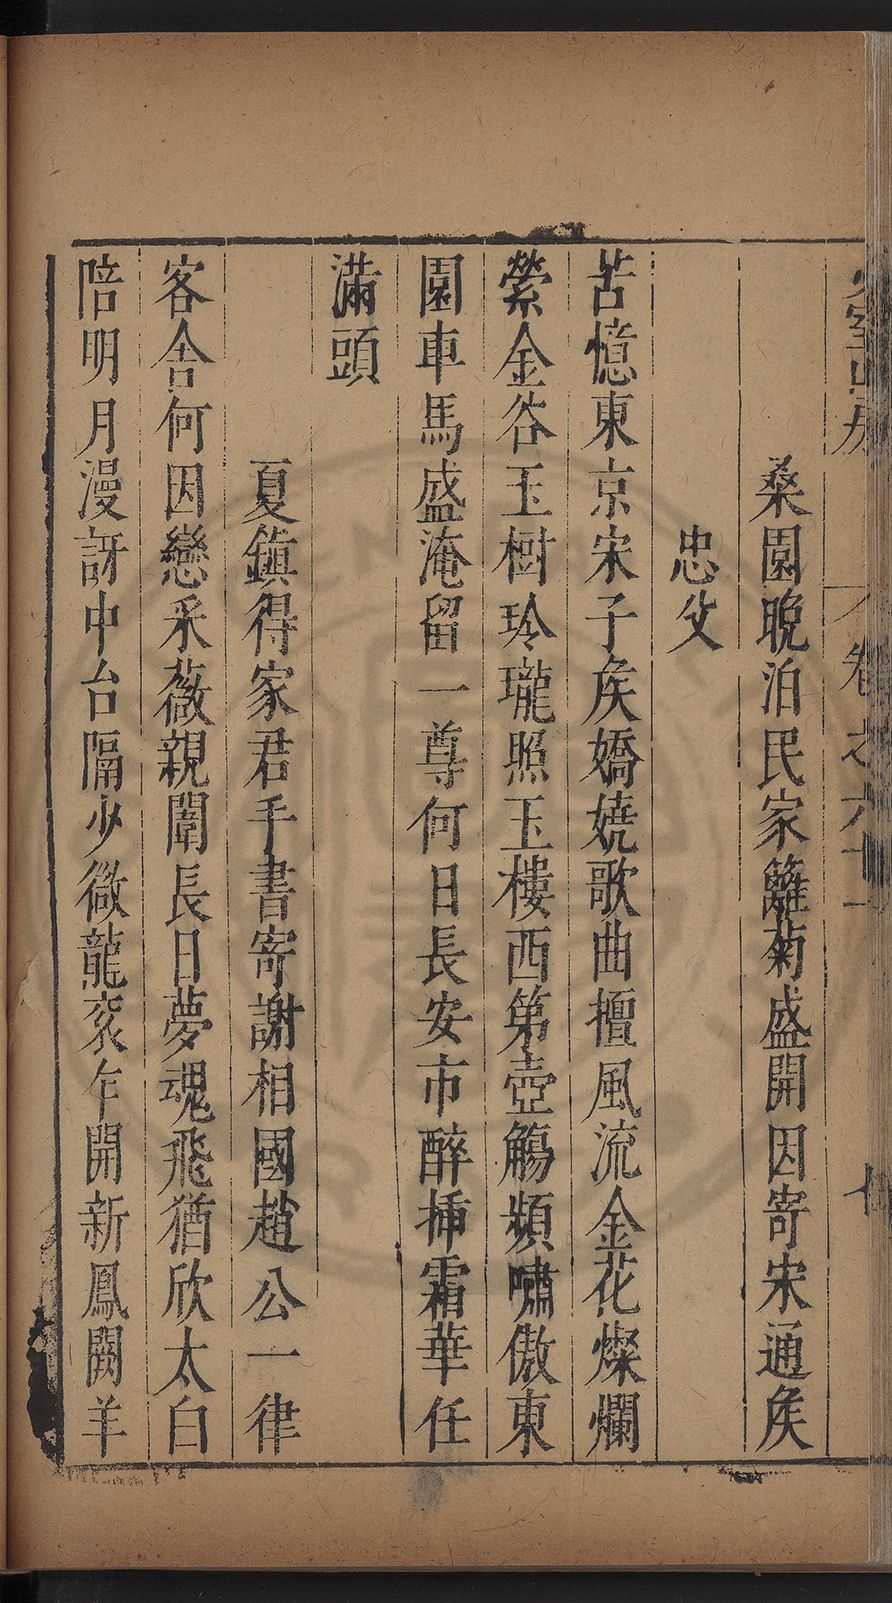 卷之六十一
桑園晚泊民家籬菊盛開因寄宋通矦
忠父
苦憶東京宋子矦嬌嬈歌曲擅風流金花燦爛
縈金谷玉樹玲瓏照玉樓西第壺觴頻嘯傲東
園車馬盛淹留一尊何日長安市醉揷霜華任
滿頭
夏鎮得家君手書寄謝相國趙公一律
客舍何因戀采薇親闈長日夢魂飛猶欣太白
陪明月漫訝中台隔少微龍衮乍開新鳳闕羊